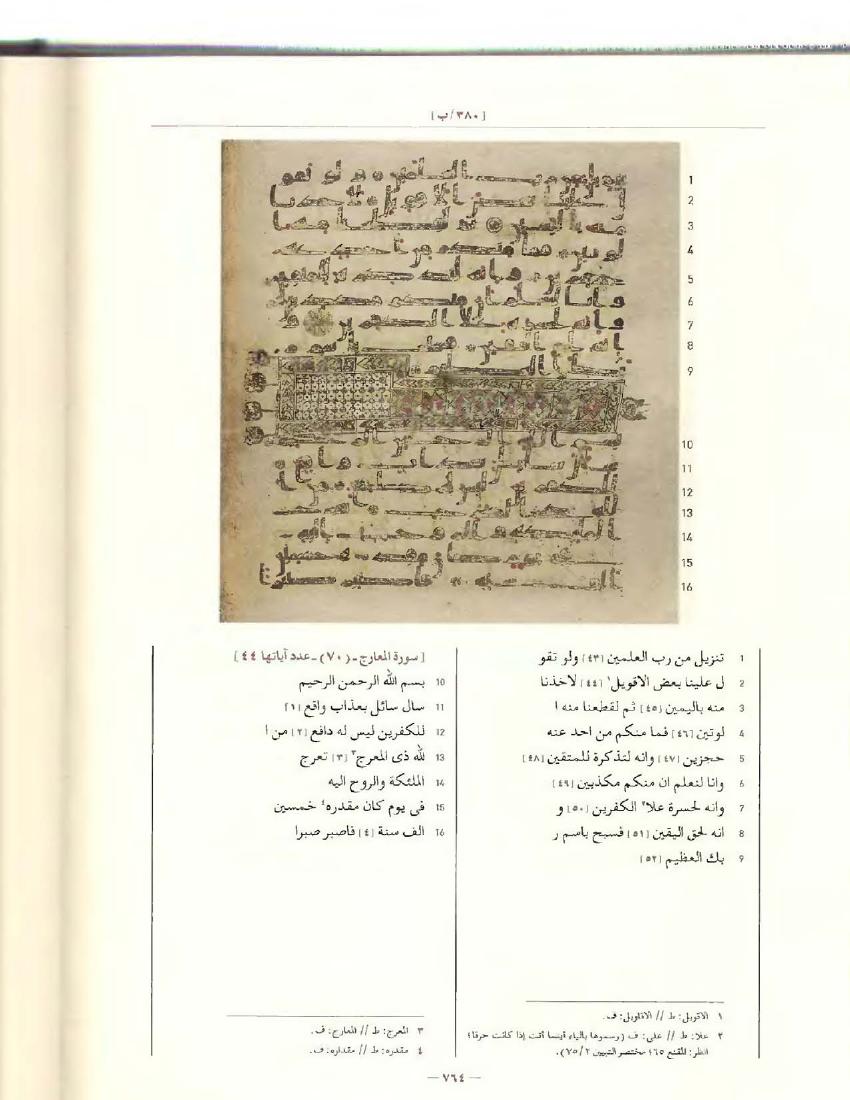 [٣٨٠/ب]
1
2
3
4
5
6
7
8
9
10
11
12
13
14
15
16
1 تنزيل من رب العلمين [٤٣] ولو تقو
2 ل علينا بعض الاقويل١ [٤٤] لاخذنا
3 منه باليمين [٤٥] ثم لقطعنا منه ا
4 لوتين [٤٦] فما منكم من احد عنه
5 حجزين [٤٧] وانه لتذكرة للمتقين [٤٨]
6 وانا لنعلم ان منكم مكذبين [٤٩]
7 وانه لحسرة علا٢ الكفرين [٥٠] و
8 انه لحق اليقين [٥١] فسبح باسم ر
9 بك العظيم [٥٢]
١ الاقويل: ط // الاقاويل: ف.
٢ علا: ط // على: ف (رسموها بالياء أينما أتت إذا كانت حرفا؛
انظر: المقنع ٦٥؛ مختصر التبيين ٧٥/٢).
[سورة المعارج-(٧٠)-عدد آياتها ٤٤]
10 بسم الله الرحمن الرحيم
11 سال سائل بعذاب واقع [١]
12 للكفرين ليس له دافع [٢] من ا
13 لله ذى المعرج٣ [٣] تعرج
14 الملئكة والروح اليه
15 فى يوم كان مقدره٤ خمسين
16 الف سنة [٤] فاصبر صبرا
٣ المعرج: ط // المعارج: ف.
٤ مقدره: ط // مقداره: ف.
— ٧٦٤ —